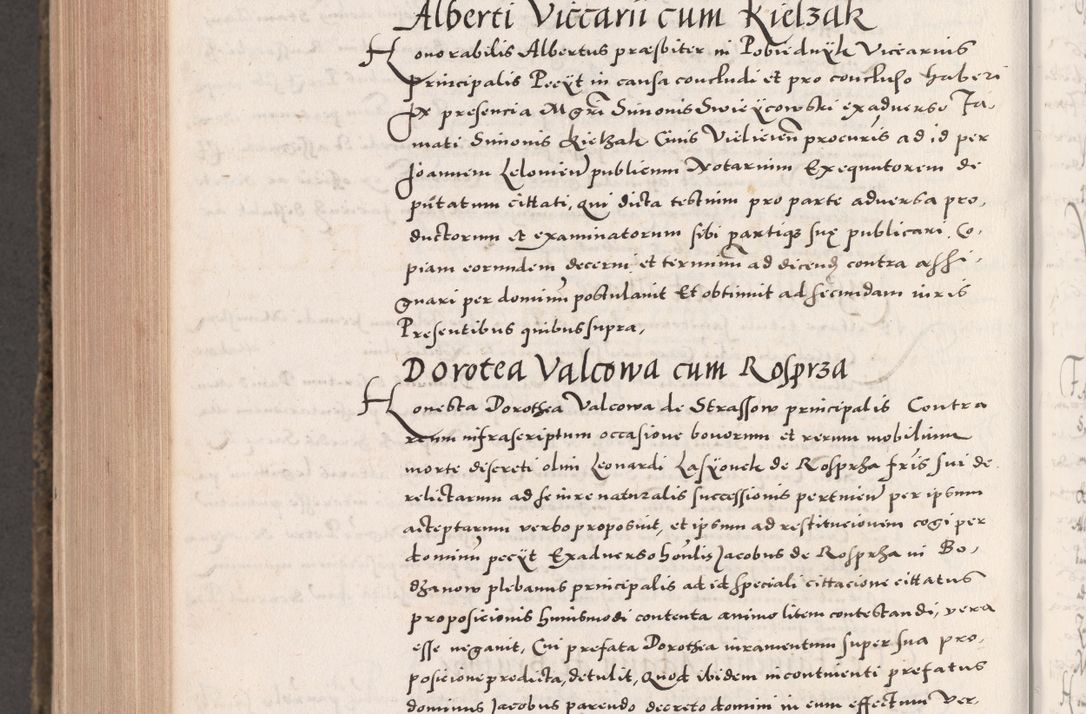 Alberti Viccarii cum Kielzak
Honorabilis Albertus præsbiter in Pobiednÿk Vicearius
Principalis Pecÿt in causa concludi et pro concluso haberi
Ex presencia Mgri Simonis Swieÿcowski exadverso Fa-
mati Simonis Kielzak Civis Vielicien procuris ad id per
Joannem Lelovien publicum Notarium Exequutorem de
putatum cittati, qui dicta testium pro parte adversa pro-
ductorum et examinatorum sibi partiq3 suę publicari Co-
piam eorundem decerni et terminū ad dicend contra assi-
gnari per dominū postulavit Et obtinuit ad secundam iuris
Presentibus quibus supra,
Dorotea Valcowa cum Rosprza
Honesta Dorothea Valcowa de Strassow principalis Contra
reum infrascriptum occasione bonorum et rerum mobilium
morte discreti olim Leonardi Lasÿonek de Rosprza fris sui de
relictarum ad se iure naturalis successionis pertinen per ipsum
acceptarum verbo proposuit, et ipsum ad restitucionem cogi per
dominū pecÿt Exadverso honlis Jacobus de Rosprza in Bo-
dzanow plebanus principalis ad id speciali cittacione cittatus
proposicionis huiusmodi contenta animo litem contestandi, vera
esse negavit, Cui prefata Dorothea iuramentum super sua pro-
posicione predicta, detulit, Quod ibidem incontinenti prefatus
dominus Jacobus parendo decreto domini in eum effectum Ver-